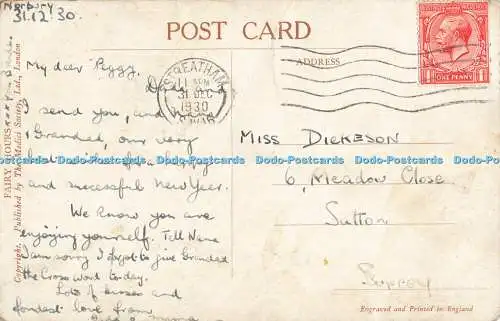 Norbury
31.12.30.
POST CARD
ADDRESS
STREATHAM
31 DEC
1930
ONE PENNY
My dear Peggy,
Dad & I
I send you, and
Grandad, our very
best wishes for a happy
and successful New Year.
We know you are
enjoying yourself. Tell Nana
I am sorry I forgot to give Grandad
the Cross word to-day.
Lots of kisses and
fondest love from
MISS DICKESON
6, Meadow Close
Sutton
Surrey
FAIRY HOURS
Copyright. Published by The Medici Society, Ltd., London
Engraved and Printed in England
Dodo-Postcards Dodo-Postcards Dodo-Postcards Dodo-Postcards